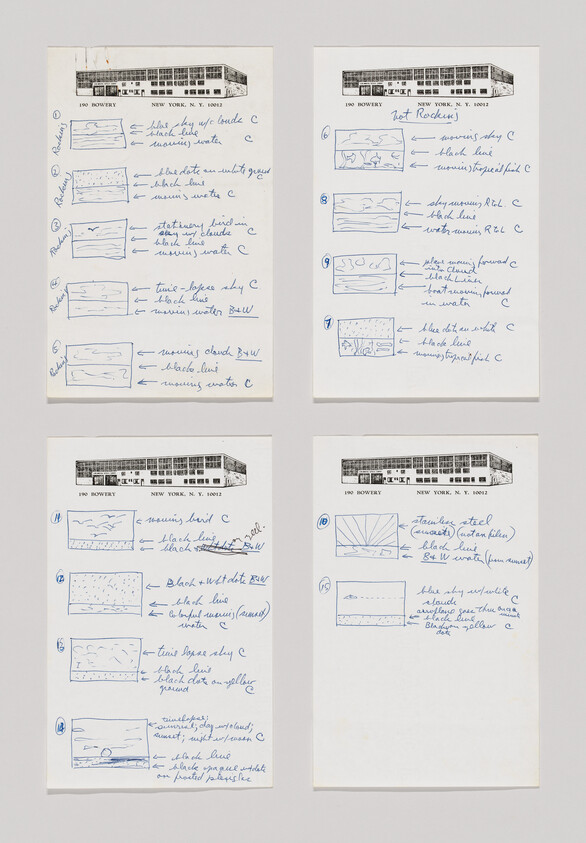 190 BOWERY NEW YORK, N. Y. 10012
1
Rocking
blue sky w/ clouds C
black line
moving water C
2
Rocking
blue dots on white ground C
black line
moving water C
3
Rocking
stationery bird in
sky w/ clouds C
black line
moving water C
4
Rocking
time-lapse sky C
black line
moving water B+W
5
Rocking
moving clouds B+W
black line
moving water C
190 BOWERY NEW YORK, N. Y. 10012
not Rocking
6
moving sky C
black line
moving tropical fish C
8
sky moving R to L C
black line
water moving R to L C
9
plane moving forward C
into cloud
black line
boat moving forward
in water C
7
blue dots on white C
black line
moving tropical fish C
190 BOWERY NEW YORK, N. Y. 10012
11
moving bird C
black line
black + B+W
12
Black + White dots B+W
black line
colorful moving (sunset)
water C
13
time lapse sky C
black line
black dots on yellow
ground C
14
timelapse;
sunrise; day w/ cloud;
sunset; night w/ moon C
black line
black opaque dots
on
190 BOWERY NEW YORK, N. Y. 10012
10
stainless steel
(sunrise) (not on film)
black line
B+W water (from sunset)
15
blue sky w/ white
clouds C
airplane goes thru once a minute
black line
Black on yellow C
dots